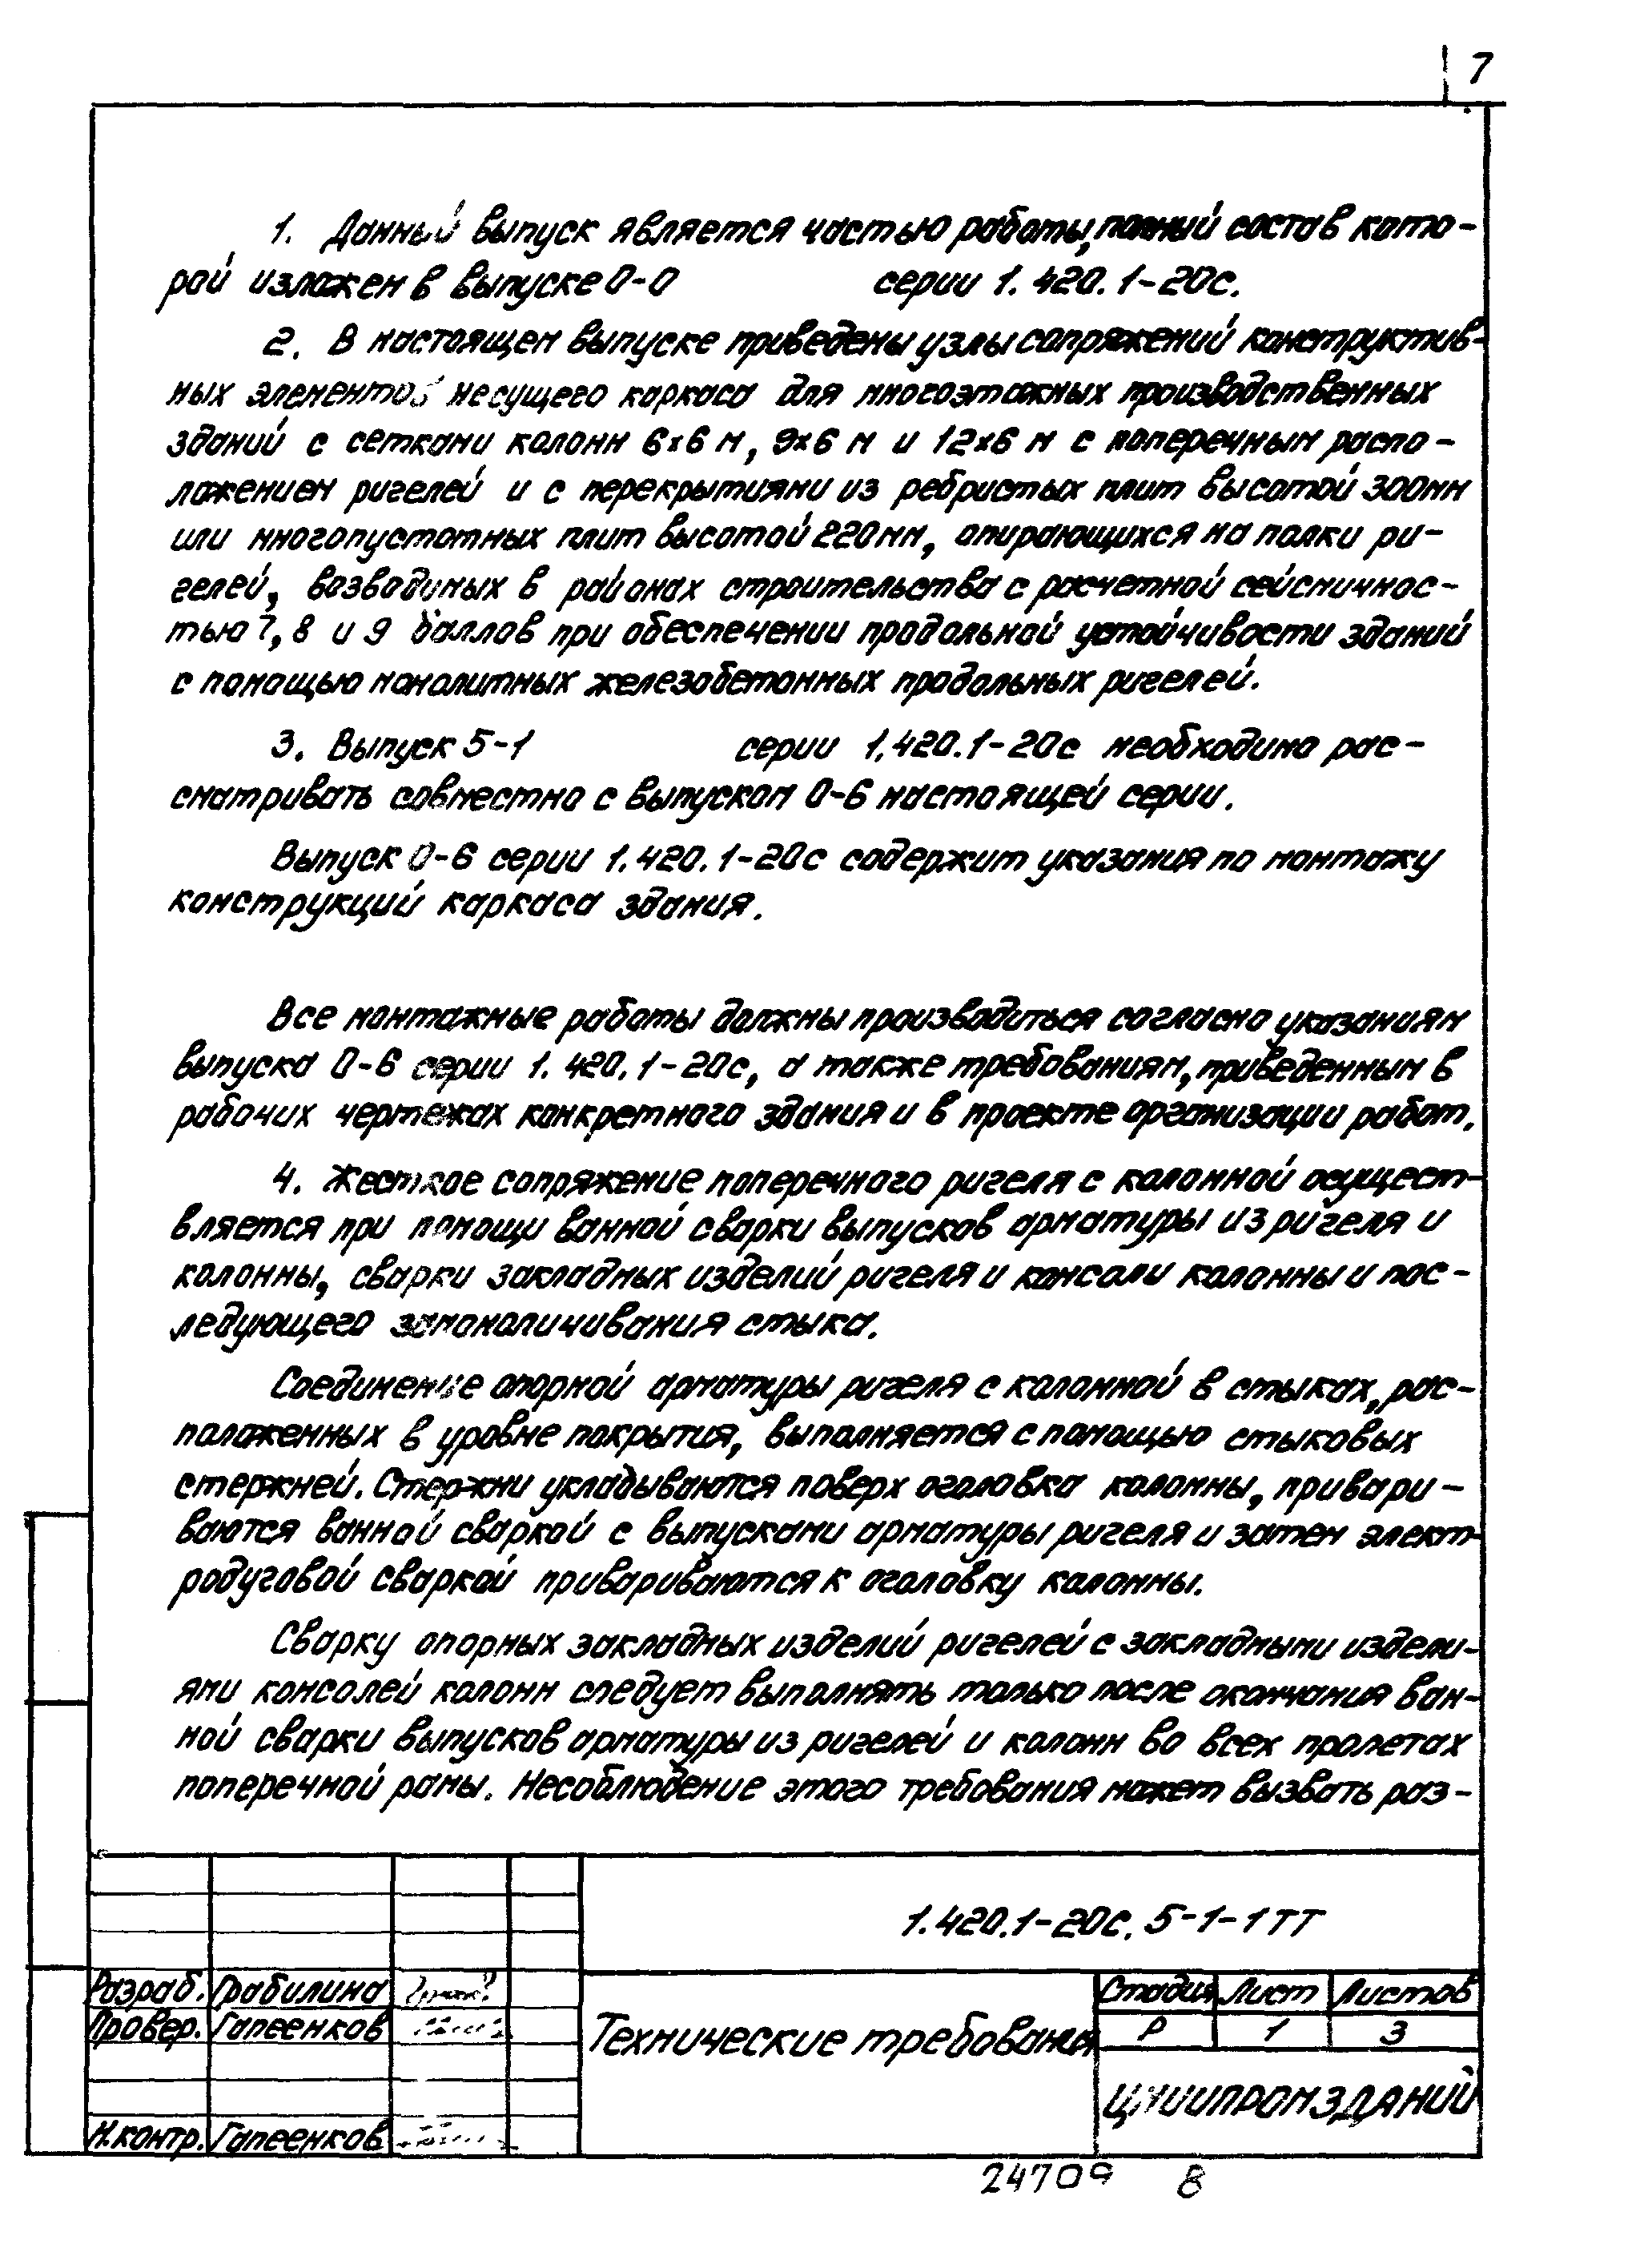 7
1. Данный выпуск является частью работы, полный состав кото-
рой изложен в выпуске 0-0 серии 1.420.1-20с.
2. В настоящем выпуске приведены узлы сопряжений конструктив-
ных элементов несущего каркаса для многоэтажных производственных
зданий с сетками колонн 6х6 м, 9х6 м и 12х6 м с поперечным распо-
ложением ригелей и с перекрытиями из ребристых плит высотой 300мм
или многопустотных плит высотой 220мм, опирающихся на полки ри-
гелей, возводимых в районах строительства с расчетной сейсмичнос-
тью 7, 8 и 9 баллов при обеспечении продольной устойчивости зданий
с помощью монолитных железобетонных продольных ригелей.
3. Выпуск 5-1 серии 1.420.1-20с необходимо рас-
сматривать совместно с выпуском 0-6 настоящей серии.
Выпуск 0-6 серии 1.420.1-20с содержит указания по монтажу
конструкций каркаса здания.
Все монтажные работы должны производиться согласно указаниям
выпуска 0-6 серии 1.420.1-20с, а также требованиям, приведенным в
рабочих чертежах конкретного здания и в проекте организации работ.
4. Жесткое сопряжение поперечного ригеля с колонной осущест-
вляется при помощи ванной сварки выпусков арматуры из ригеля и
колонны, сварки закладных изделий ригеля и консоли колонны и пос-
ледующего замоноличивания стыка.
Соединение опорной арматуры ригеля с колонной в стыках, рас-
положенных в уровне покрытия, выполняется с помощью стыковых
стержней. Стержни укладываются поверх оголовка колонны, привари-
ваются ванной сваркой с выпусками арматуры ригеля и затем элект-
родуговой сваркой привариваются к оголовку колонны.
Сварку опорных закладных изделий ригелей с закладными издели-
ями консолей колонн следует выполнять только после окончания ван-
ной сварки выпусков арматуры из ригелей и колонн во всех пролетах
поперечной рамы. Несоблюдение этого требования может вызвать раз-
1.420.1-20с. 5-1-1ТТ
Разраб. Грабилина
Провер. Гапеенков
Н.контр. Гапеенков
Технические требования
Стадия Лист Листов
Р 1 3
ЦНИИПРОМЗДАНИЙ
24709 8